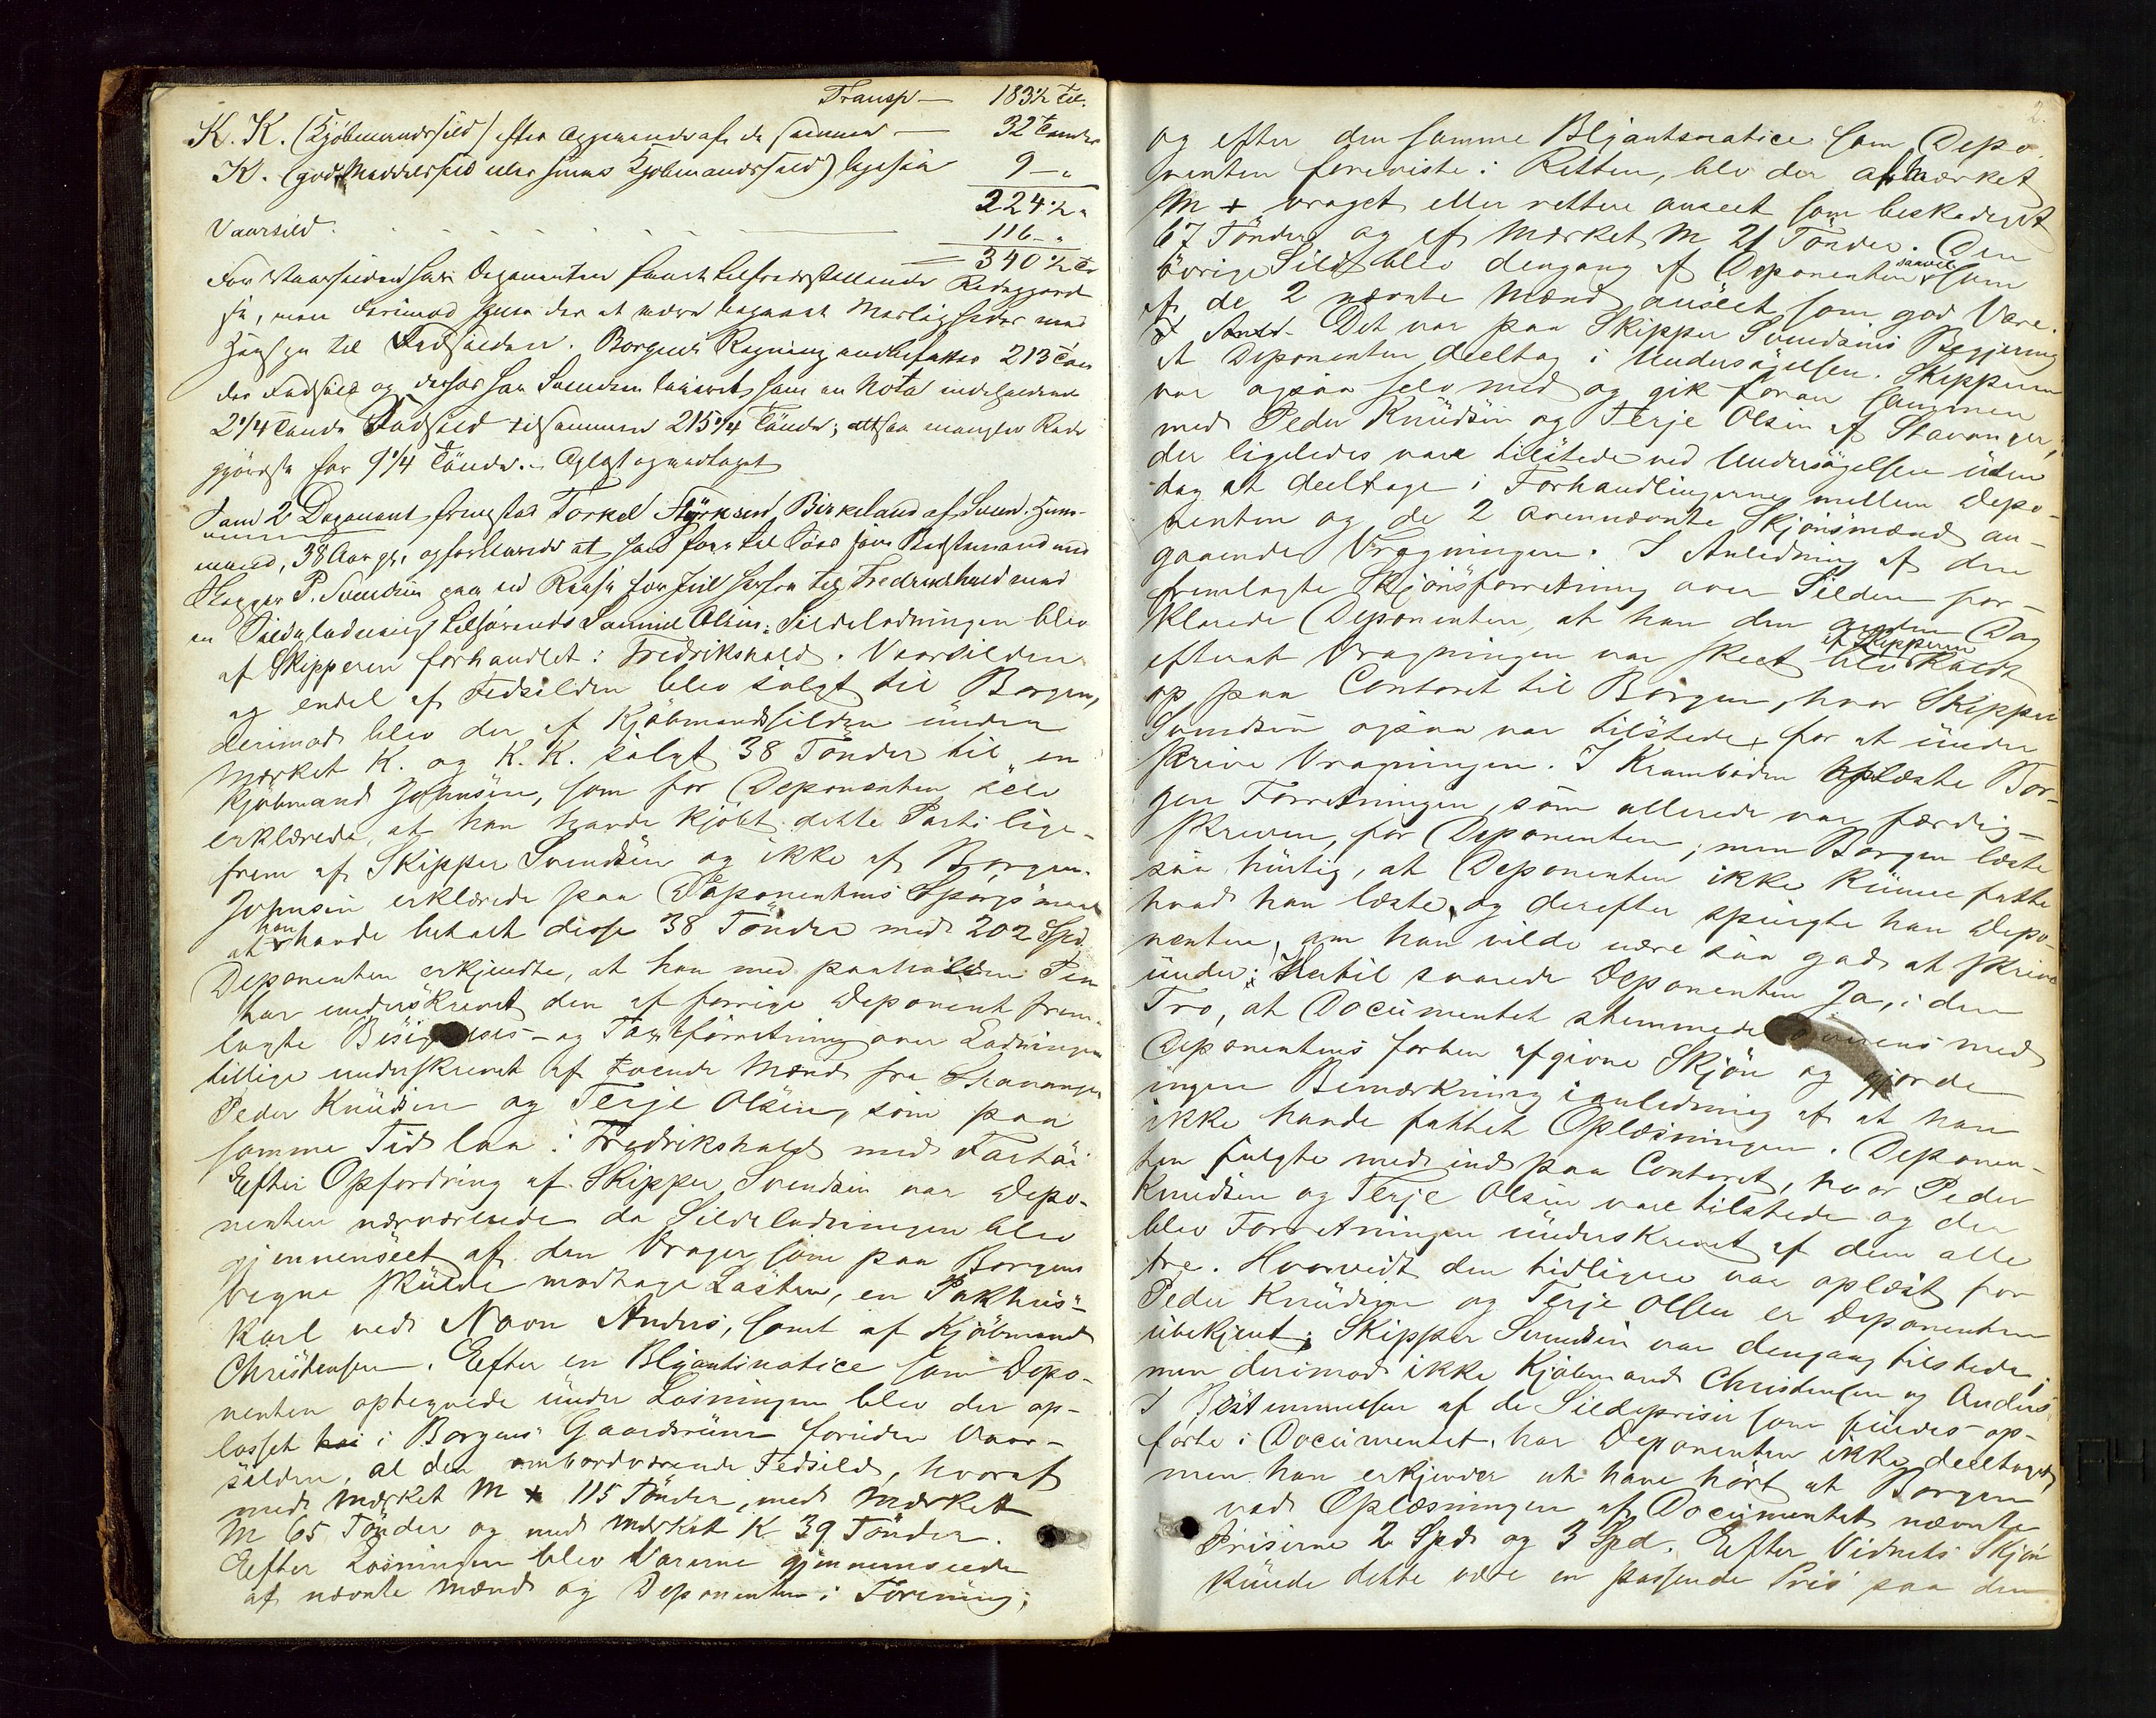 Transp — 183½ Td.
K. K. (Kjøbmandssild) efter Opgivende af de samme — 32 Tønder
K. (god Middelsild eller smaa Kjøbmandssild) ligesaa 9 — "
224½ "
Vaarsild . . . . . . . 116 — "
= 340½ Td
For Vaarsilden har Deponenten faaet tilfredsstillende Redegjørel-
se, men derimod synes der at være begaaet Uærligheder med
Hensyn til Fedsilden. Borgens Regning indbefatter 213 Tøn-
der Fedsild og desfor har Svendsen leveret ham en Nota indeholdende
2¼ Tønde Fedsild tilsammen 215¼ Tønder; altsaa mangler Rede
gjørelse for 9¼ Tønder. – Oplæst og vedtaget
Som 2 Deponent fremstod Torkel Styrksen Birkeland af Svend. Hun-
mand, 38 Aar gl., og forklarede at han foer til Søes som Bedstemand med
Skipper P. Svendsen paa en Reise før Juul herfra til Fredrikshald med
en Sildeladning tilhørende Samuel Olsen. Sildeladningen blev
af Skipperen forhandlet i Fredrikshald. Vaarsilden
og endel af Fedsilden blev solgt til Borgen,
derimod blev der af Kjøbmandssilden under
Mærket K. og K. K. solgt 38 Tønder til en
Kjøbmand Johnsen, som for Deponenten selv
erklærede, at han havde kjøbt dette Parti lige-
frem af Skipper Svendsen og ikke af Borgen.
Johnsen erklærede paa Deponentens Spørgsmaal
at han havde betalt disse 38 Tønder med 202 Spd.
Deponenten erkjendte, at han med paaholden Pen
har underskrevet den af forrige Deponent frem-
lagte Besigtelses- og Taxtforretning over Ladningen
tillige underskrevet af tvende Mænd fra Stavanger
Peder Knudsen og Terje Olsen, som paa
samme Tid laa i Fredrikshald med Fartøi
Efter Opfordring af Skipper Svendsen var Depo-
nenten nærværende da Sildeladningen blev
gjennemseet af den Vrager som paa Borgens
Vegne skulde modtage Lasten, en Pakhus-
karl ved Navn Anders, samt af Kjøbmand
Christensen. Efter en Blyantsnotice som Depo-
nenten optegnede under Losningen blev der op-
losset i Borgens Gaardsrum foruden Vaar-
silden, al den ombordværende Fedsild, hvoraf
med Mærket M + 115 Tønder, med Mærket
M 65 Tønder og med Mærket K 39 Tønder.
Efter Losningen blev Varerne gjennemseede
af nævnte Mænd og Deponenten i Forening;
2.
og efter den samme Blyantsnotice som Depo-
nenten foreviste i Retten, blev der af Mærket
M + vraget eller rettere anseet som beskadiget
67 Tønder og af Mærket M 21 Tønder. Den
øvrige Sild blev dengang af Deponenten saavel som
af de 2 nævnte Mænd anseet som god Vare.
Det var paa Skipper Svendsens Begjering
at Deponenten deeltog i Undersøgelsen. Skipperen
var ogsaa selv med og gik foran sammen
med Peder Knudsen og Terje Olsen af Stavanger,
der ligeledes vare tilstede ved Undersøgelsen uden
dog at deeltage i Forhandlingerne mellem Depo-
nenten og de 2 ovennævnte Skjønsmænd an-
gaaende Vragningen. I Anledning af den
fremlagte Skjønsforretning over Silden for-
klarede Deponenten, at han den anden Dag
efterat Vragningen var skeet blev af Skipperen kaldt
op paa Contoret til Borgen, hvor Skipper
Svendsen ogsaa var tilstede, for at under
skrive Vragningen. I Kramboden oplæste Bor-
gen Forretningen, som allerede var færdig-
skreven, for Deponenten; men Borgen læste
saa hurtig, at Deponenten ikke kunne fatte
hvad han læste, og derefter spurgte han Depo-
nenten, om han vilde være saa god at skrive
under. Hertil svarede Deponenten Ja, i den
Tro, at Documentet stemmede overens med
Deponentens forhen afgivne Skjøn og gjorde
ingen Bemærkning i anledning af at han
ikke havde fattet Oplæsningen. Deponen-
ten fulgte med ind paa Contoret, hvor Peder
Knudsen og Terje Olsen vare tilstede og der
blev Forretningen underskrevet af dem alle
tre. Hvorvidt den tidligere var oplæst for
Peder Knudsen og Terje Olsen er Deponenten
ubekjent; Skipper Svendsen var dengang tilstede;
men derimod ikke Kjøbmand Christensen og Anders.
I Bestemmelsen af de Sildepriser som findes op-
førte i Documentet, har Deponenten ikke deeltaget,
men han erkjender at have hørt at Borgen
ved Oplæsningen af Documentet nævnte
Priserne 2 Spd. og 3 Spd. Efter Vidnets Skjøn
kunde dette være en passende Pris paa den